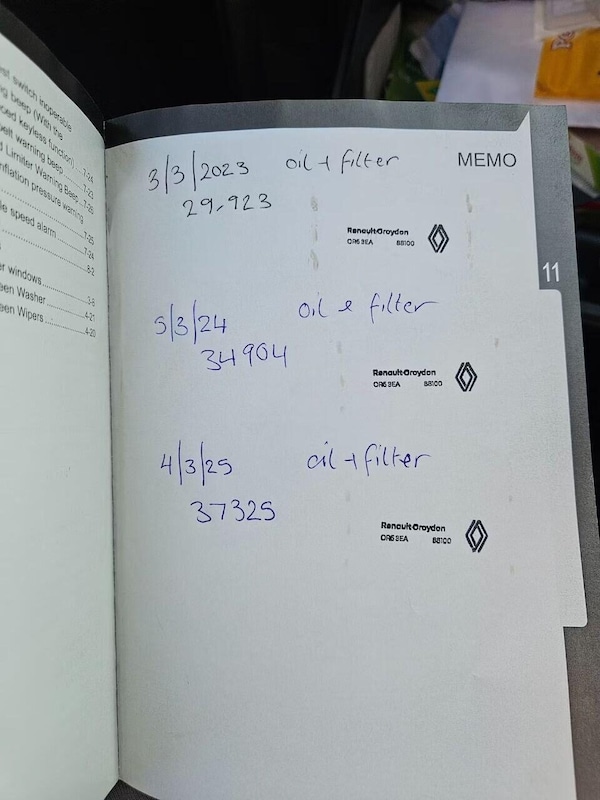 est switch inoperable
ng beep (With the
nced keyless function) ..7-24
belt warning beep ..7-23
d Limiter Warning Beep ..7-25
nflation pressure warning
7-25
le speed alarm 7-24
8-2
er windows 3-6
een Washer 4-21
een Wipers 4-20
MEMO
11
3/3/2023 oil + filter
29,923
Renault Croydon
CR6 3EA 88100
5/3/24 oil & filter
34904
Renault Croydon
CR6 3EA 88100
4/3/25 oil + filter
37325
Renault Croydon
CR6 3EA 88100